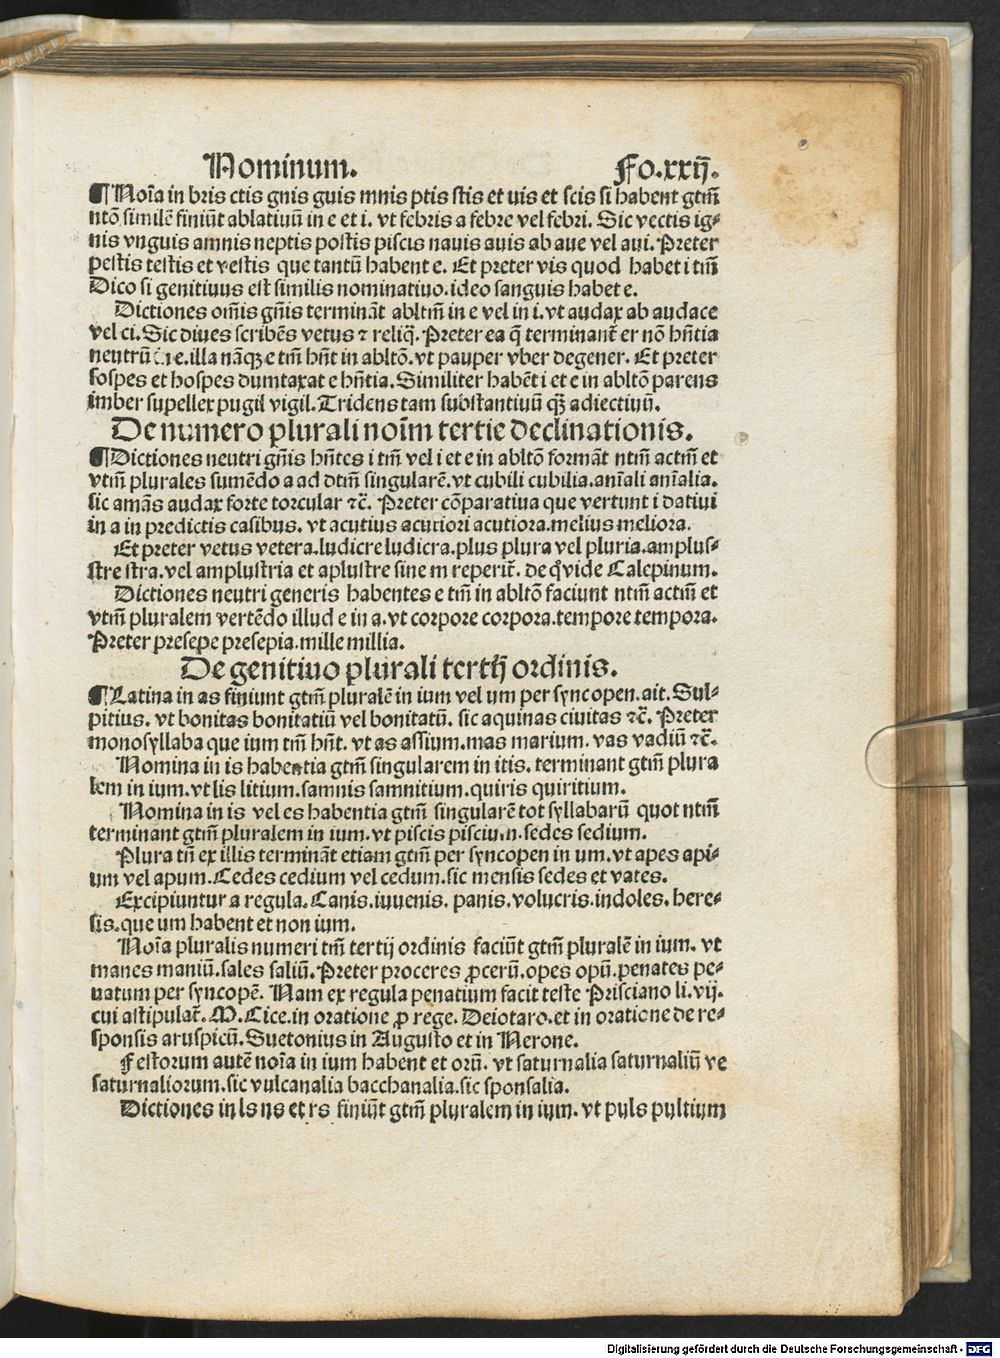 Nominum. Fo.xxij.
¶ Noīa in bris ctis gnis guis mnis ptis stis et uis et scis si habent gtm̄
ntō similē finiūt ablatiuū in e et i. vt febris a febre vel febri. Sic vectis ig⸗
nis vnguis amnis neptis postis piscis nauis auis ab aue vel aui. Preter
pestis testis et vestis que tantū habent e. Et preter vis quod habet i tm̄
Dico si genitiuus est similis nominatiuo. ideo sanguis habet e.
Dictiones om̄is gn̄is termināt abltm̄ in e vel in i. vt audax ab audace
vel ci. Sic diues scribēs vetus ⁊ reliq̄. Preter ea q̄ terminant̄ er nō hn̄tia
neutrū e. illa nāqꝫ e tm̄ hn̄t in abltō. vt pauper vber degener. Et preter
sospes et hospes dumtaxat e hn̄tia. Similiter habēt i et e in abltō parens
imber supellex pugil vigil. Tridens tam substantiuū qꝫ adiectiuū.
De numero plurali noīm tertie declinationis.
¶ Dictiones neutri gn̄is hn̄tes i tm̄ vel i et e in abltō formāt ntm̄ actm̄ et
vtm̄ plurales sumēdo a ad dtm̄ singularē. vt cubili cubilia. an̄iali an̄ialia.
sic amās audax forte torcular ⁊c̄. Preter cōparatiua que vertunt i datiui
in a in predictis casibus. vt acutius acutiori acutiora. melius meliora.
Et preter vetus vetera. ludicre ludicra. plus plura vel pluria. amplus⸗
stre stra. vel amplustria et aplustre sine m reperit̄. de q̄ vide Calepinum.
Dictiones neutri generis habentes e tm̄ in abltō faciunt ntm̄ actm̄ et
vtm̄ pluralem vertēdo illud e in a. vt corpore corpora. tempore tempora.
Preter presepe presepia. mille millia.
De genitiuo plurali tertij ordinis.
¶ Latina in as finiunt gtm̄ pluralē in ium vel um per syncopen. ait. Sul⸗
pitius. vt bonitas bonitatiū vel bonitatū. sic aquinas ciuitas ⁊c̄. Preter
monosyllaba que ium tm̄ hn̄t. vt as assium. mas marium. vas vadiū ⁊c̄.
Nomina in is habentia gtm̄ singularem in itis. terminant gtm̄ plura
lem in ium. vt lis litium. samnis samnitium. quiris quiritium.
Nomina in is vel es habentia gtm̄ singularē tot syllabarū quot ntm̄
terminant gtm̄ pluralem in ium. vt piscis piscium. sedes sedium.
Plura tn̄ ex illis termināt etiam gtm̄ per syncopen in um. vt apes api⸗
um vel apum. Cedes cedium vel cedum. sic mensis sedes et vates.
Excipiuntur a regula. Canis. iuuenis. panis. volucris. indoles. here⸗
sis. que um habent et non ium.
Noīa pluralis numeri tm̄ tertij ordinis faciūt gtm̄ pluralē in ium. vt
manes maniū. sales saliū. Preter proceres ꝓcerū. opes opū. penates pe⸗
natum per syncopē. Nam ex regula penatium facit teste Prisciano li. vij.
cui astipulat̄. M. Cice. in oratione ꝓ rege. Deiotaro. et in oratione de re⸗
sponsis aruspicū. Suetonius in Augusto et in Nerone.
Festorum autē noīa in ium habent et orū. vt saturnalia saturnaliū ve
saturnaliorum. sic vulcanalia bacchanalia. sic sponsalia.
Dictiones in ls ns et rs finiūt gtm̄ pluralem in ium. vt puls pultium
Digitalisierung gefördert durch die Deutsche Forschungsgemeinschaft - DFG